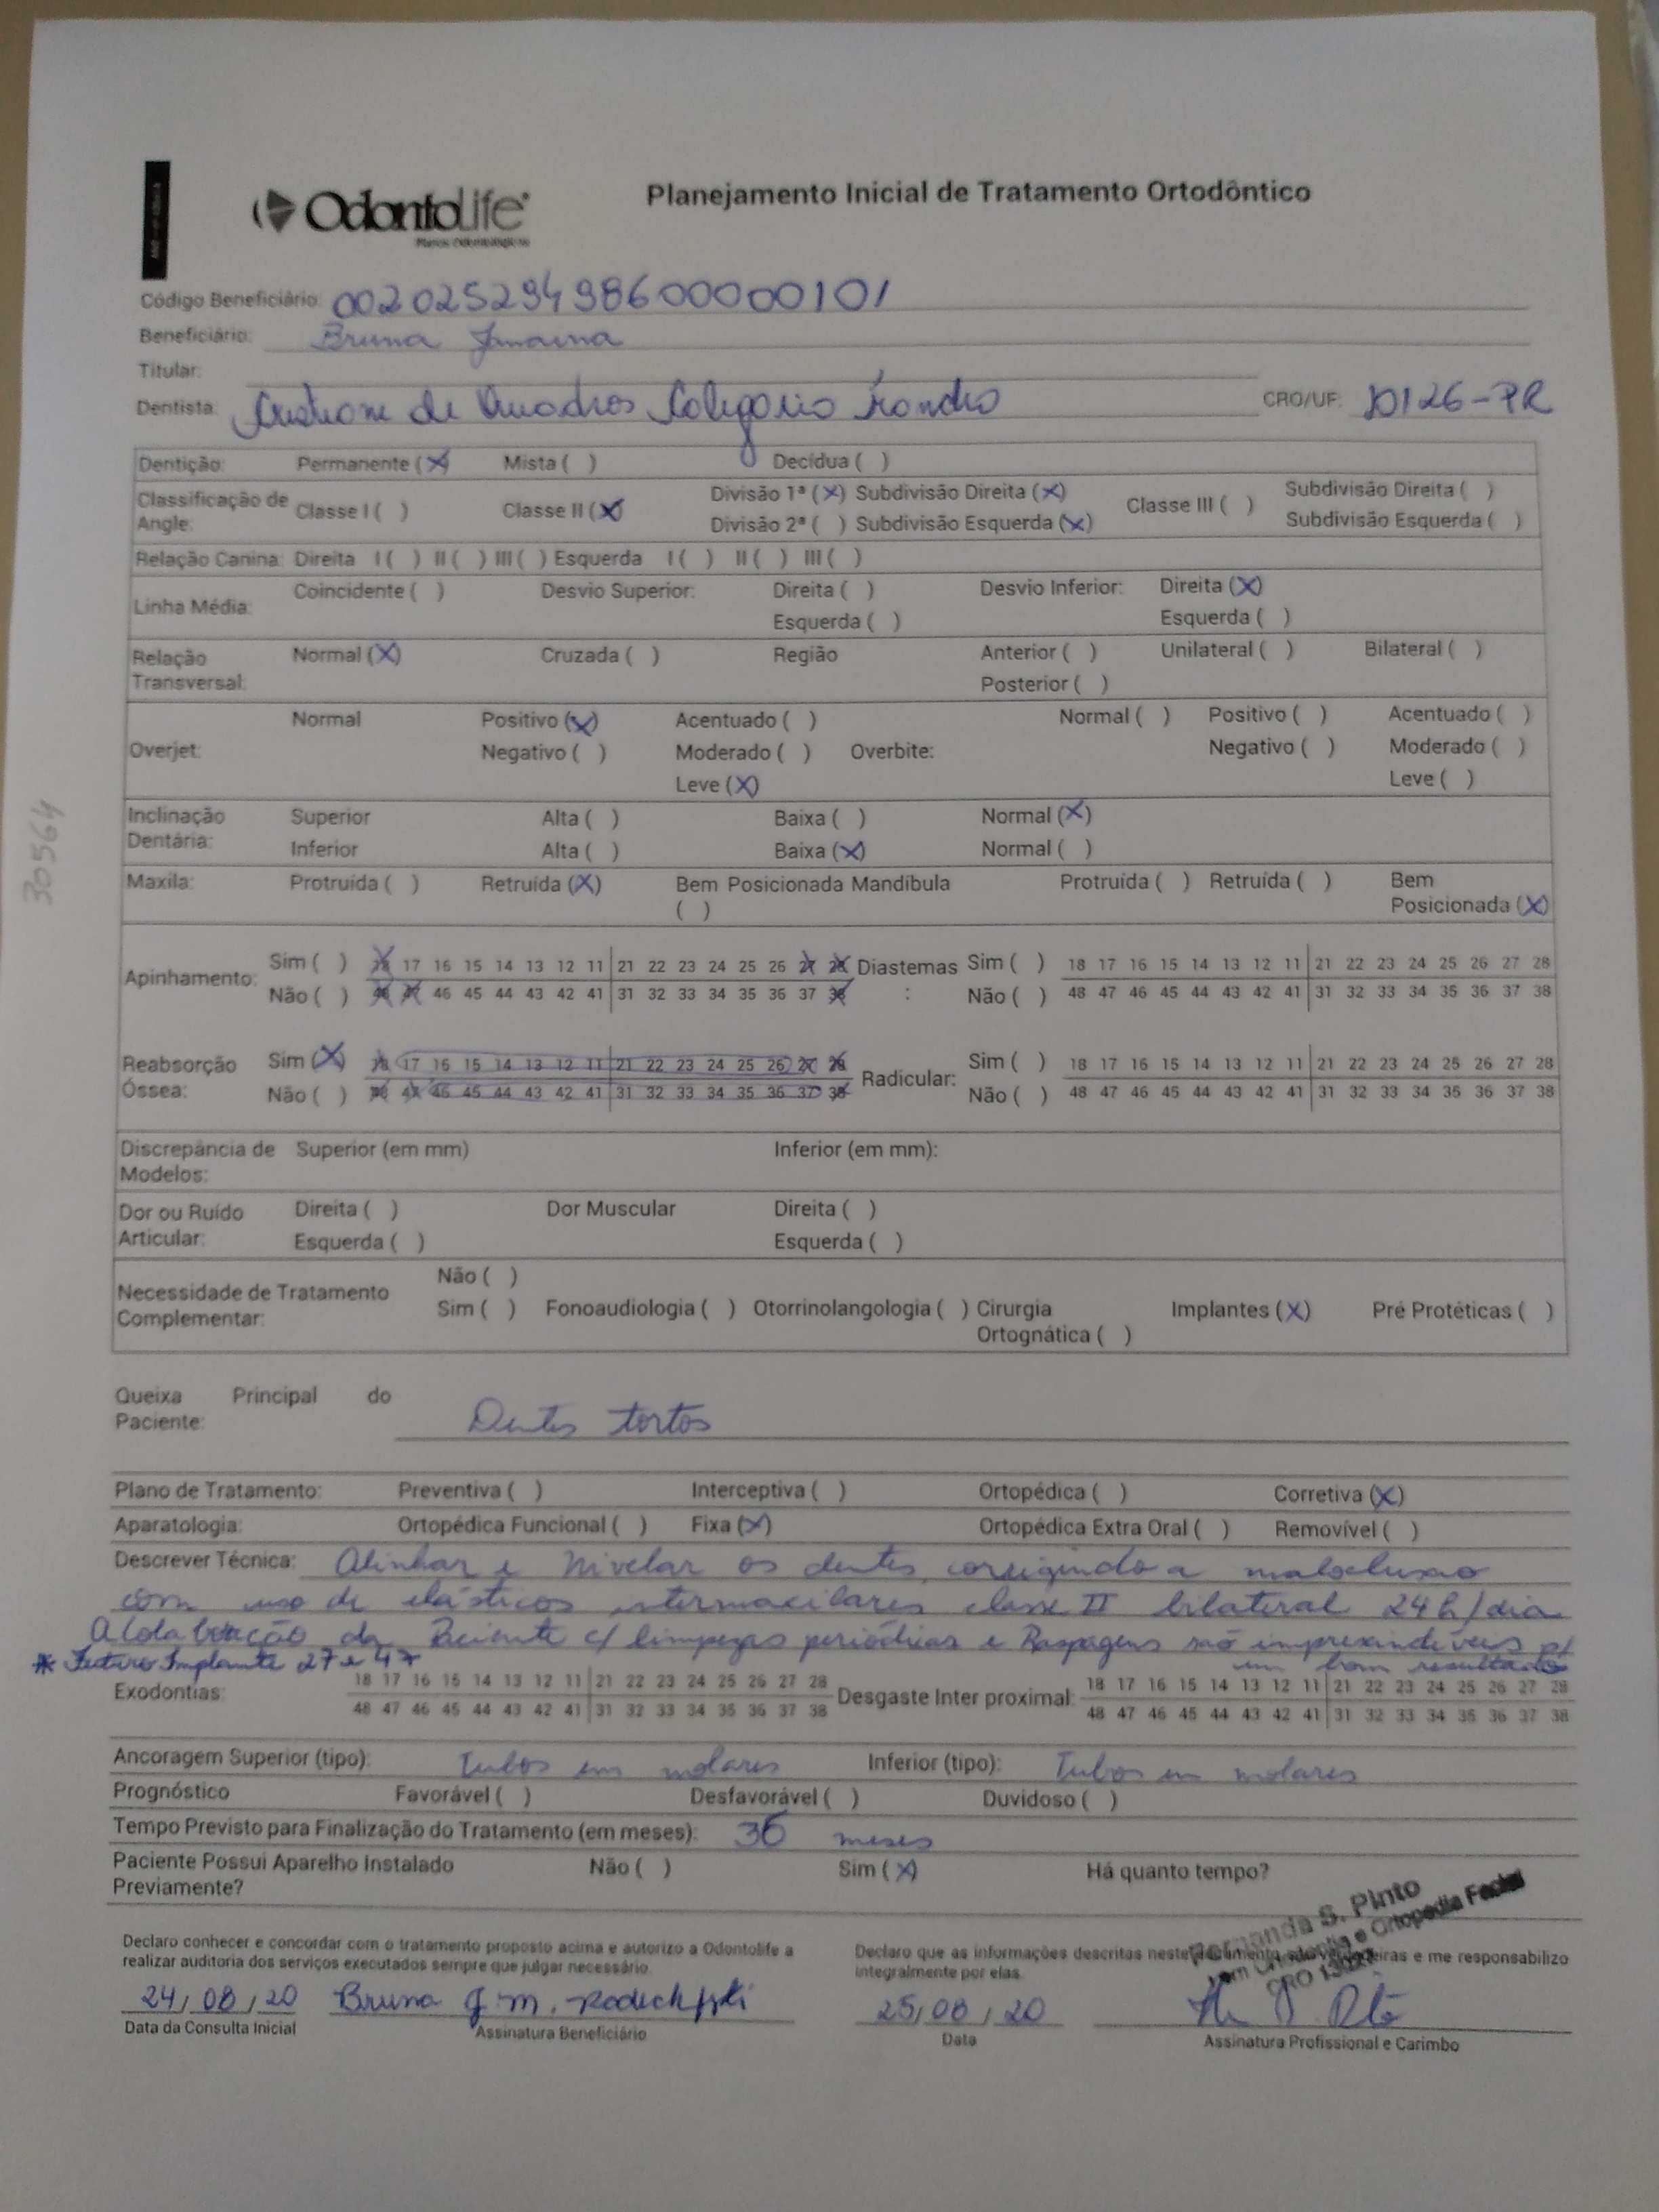 OdontoLife®
Planos Odontológicos
Planejamento Inicial de Tratamento Ortodôntico
Código Beneficiário: 00202529498600000101
Beneficiário: Bruna Janaina
Titular:
Dentista: de Quadros CRO/UF: 10126-PR
Dentição: Permanente (X) Mista ( ) Decídua ( )
Classificação de Angle: Classe I ( ) Classe II (X) Divisão 1ª (X) Subdivisão Direita (X) Classe III ( ) Subdivisão Direita ( )
Divisão 2ª ( ) Subdivisão Esquerda (X) Subdivisão Esquerda ( )
Relação Canina: Direita I ( ) II ( ) III ( ) Esquerda I ( ) II ( ) III ( )
Linha Média: Coincidente ( ) Desvio Superior: Direita ( ) Desvio Inferior: Direita (X)
Esquerda ( ) Esquerda ( )
Relação Transversal: Normal (X) Cruzada ( ) Região Anterior ( ) Unilateral ( ) Bilateral ( )
Posterior ( )
Overjet: Normal Positivo (X) Acentuado ( ) Overbite: Normal ( ) Positivo ( ) Acentuado ( )
Negativo ( ) Moderado ( ) Negativo ( ) Moderado ( )
Leve (X) Leve ( )
Inclinação Dentária: Superior Alta ( ) Baixa ( ) Normal (X)
Inferior Alta ( ) Baixa (X) Normal ( )
Maxila: Protruída ( ) Retruída (X) Bem Posicionada ( ) Mandíbula Protruída ( ) Retruída ( ) Bem Posicionada (X)
30564
Apinhamento: Sim ( ) 18 17 16 15 14 13 12 11 21 22 23 24 25 26 27 28 Diastemas : Sim ( ) 18 17 16 15 14 13 12 11 21 22 23 24 25 26 27 28
Não ( ) 48 47 46 45 44 43 42 41 31 32 33 34 35 36 37 38 Não ( ) 48 47 46 45 44 43 42 41 31 32 33 34 35 36 37 38
Reabsorção Óssea: Sim (X) 18 17 16 15 14 13 12 11 21 22 23 24 25 26 27 28 Radicular: Sim ( ) 18 17 16 15 14 13 12 11 21 22 23 24 25 26 27 28
Não ( ) 48 47 46 45 44 43 42 41 31 32 33 34 35 36 37 38 Não ( ) 48 47 46 45 44 43 42 41 31 32 33 34 35 36 37 38
Discrepância de Modelos: Superior (em mm) Inferior (em mm):
Dor ou Ruído Articular: Direita ( ) Dor Muscular Direita ( )
Esquerda ( ) Esquerda ( )
Necessidade de Tratamento Complementar: Não ( )
Sim ( ) Fonoaudiologia ( ) Otorrinolangologia ( ) Cirurgia Ortognática ( ) Implantes (X) Pré Protéticas ( )
Queixa Principal do Paciente: Dentes tortos
Plano de Tratamento: Preventiva ( ) Interceptiva ( ) Ortopédica ( ) Corretiva (X)
Aparatologia: Ortopédica Funcional ( ) Fixa (X) Ortopédica Extra Oral ( ) Removível ( )
Descrever Técnica: Alinhar e Nivelar os dentes, corrigindo a maloclusão
com uso de elásticos intermaxilares classe II bilateral 24h/dia
A Colaboração da Paciente c/ limpezas periódicas e Raspagens são imprexindíveis p/
um bom resultado
* Futuro Implante 27 e 47
Exodontias: 18 17 16 15 14 13 12 11 21 22 23 24 25 26 27 28 Desgaste Inter proximal: 18 17 16 15 14 13 12 11 21 22 23 24 25 26 27 28
48 47 46 45 44 43 42 41 31 32 33 34 35 36 37 38 48 47 46 45 44 43 42 41 31 32 33 34 35 36 37 38
Ancoragem Superior (tipo): Tubos em molares Inferior (tipo): Tubos em molares
Prognóstico Favorável ( ) Desfavorável ( ) Duvidoso ( )
Tempo Previsto para Finalização do Tratamento (em meses): 36 meses
Paciente Possui Aparelho Instalado Previamente? Não ( ) Sim (X) Há quanto tempo?
Fernanda S. Pinto
em Ortodontia e Ortopedia Facial
CRO
Declaro conhecer e concordar com o tratamento proposto acima e autorizo a Odontolife a
realizar auditoria dos serviços executados sempre que julgar necessário.
Declaro que as informações descritas neste documento são verdadeiras e me responsabilizo
integralmente por elas.
24/08/20 Bruna J. M. 25/08/20
Data da Consulta Inicial Assinatura Beneficiário Data Assinatura Profissional e Carimbo